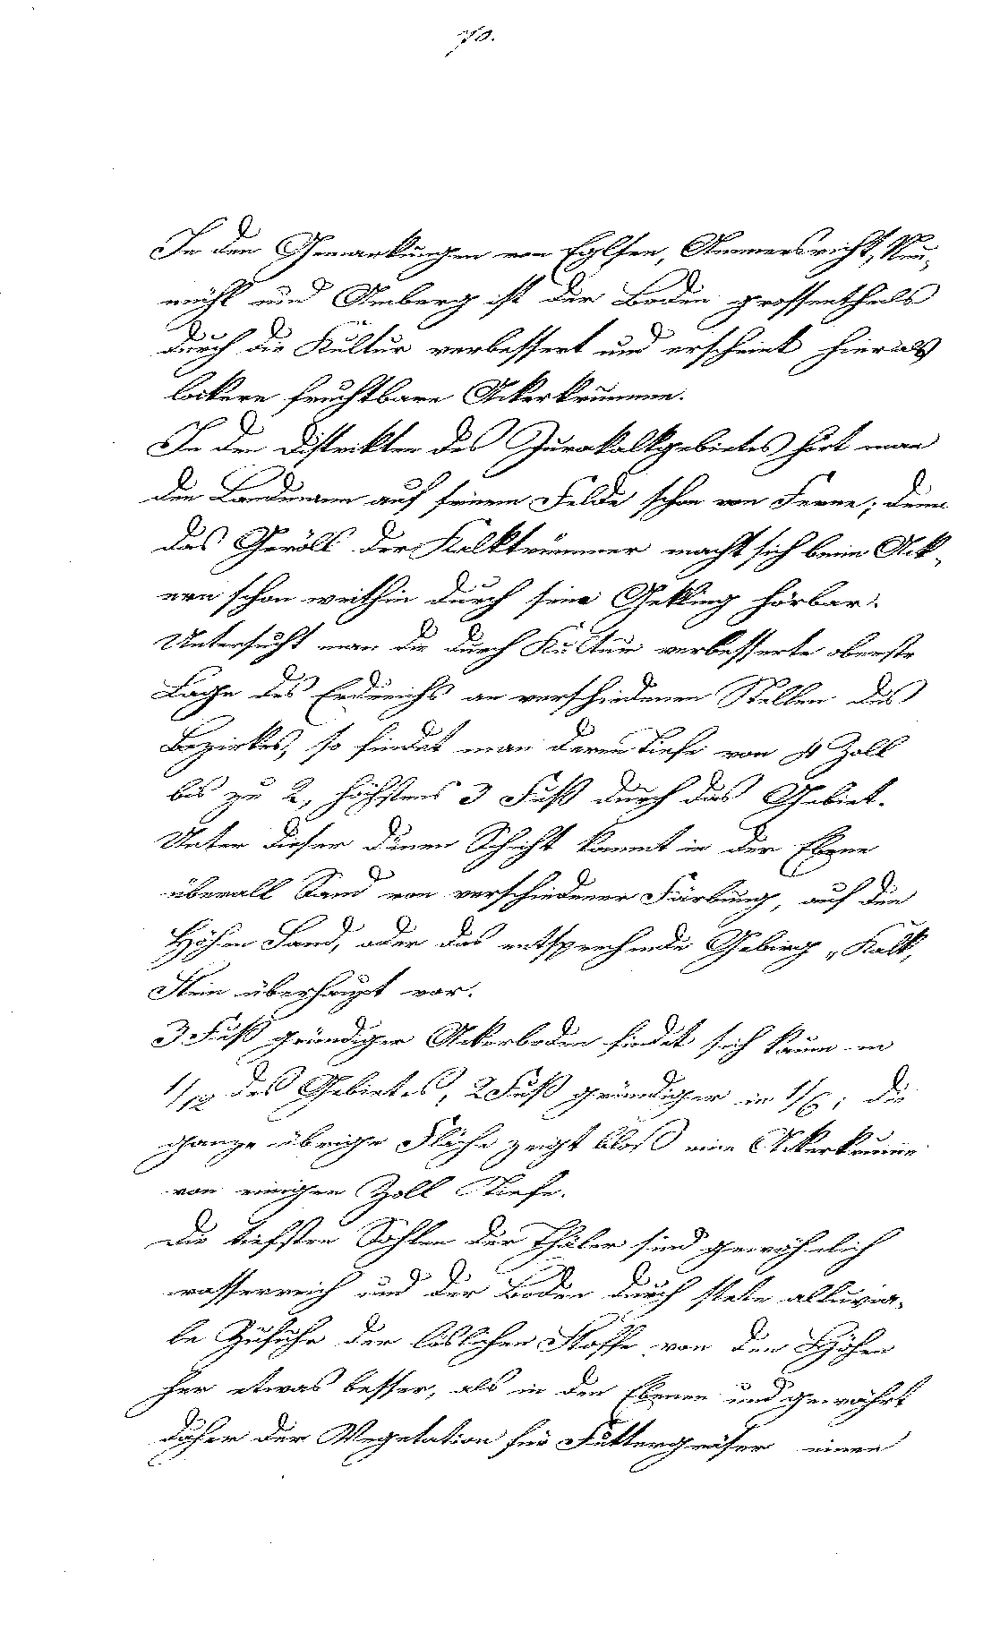 70.
In den Gemarkungen von Eglsee, Ammersricht, Neu-
mühl und Amberg ist der Boden grossentheils
durch die Kultur verbessert und erscheint hier als
lockere fruchtbare Ackerkrumme.
In den Distrikten des Jurakalkgebietes hört man
den Landmann auf seinem Felde schon von Ferne; denn
das Geröll der Kalktrümmer macht sich beim Ack-
ern schon weithin durch sein Gekling hörbar.
Untersucht man die durch Kultur verbesserte oberste
Lage des Erdreichs an verschiedenen Stellen des
Bezirkes, so findet man deren Tiefe von 4 Zoll
bis zu 2, höchstens 3 Fuß durch das Gebiet.
Unter dieser dünen Schicht kommt in der Ebene
überall Sand von verschiedener Färbung, auf den
Höhen Sand, oder das entsprechende Gebirg „Kalk,
Stein überhaupt vor.
3 Fuß gründiger Ackerboden findet sich kaum in
1/12 des Gebietes, 2 Fuß gründiger in 1/6; die
ganze übrige Fläche zeigt bloß eine Ackerkrume
von einigen Zoll Tiefe.
Die tiefsten Sohlen der Thäler sind gewöhnlich
wasserreich und der Boden durch stete alluvia-
le Zufuhr der löslichen Stoffe von den Höhen
her etwas besser, als in den Ebenen und gewährt
daher der Vegetation für Futtergräser einen